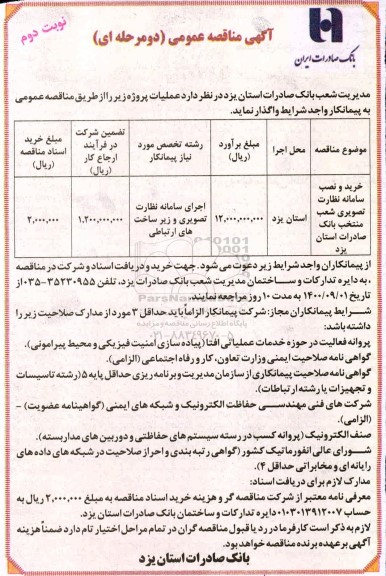 نوبت دوم
آگهی مناقصه عمومی (دومرحله ای)
بانک صادرات ایران
مدیریت شعب بانک صادرات استان یزد در نظر دارد عملیات پروژه زیر را از طریق مناقصه عمومی
به پیمانکار واجد شرایط واگذار نماید.
موضوع مناقصه
محل اجرا
مبلغ برآورد
(ریال)
رشته تخصص مورد
نیاز پیمانکار
تضمین شرکت
در فرآیند
ارجاع کار
(ریال)
مبلغ خرید
اسناد مناقصه
(ریال)
خرید و نصب
سامانه نظارت
تصویری شعب
منتخب بانک
صادرات استان
یزد
استان یزد
۱۲,۰۰۰,۰۰۰,۰۰۰
اجرای سامانه نظارت
تصویری و زیر ساخت
های ارتباطی
۱,۲۰۰,۰۰۰,۰۰۰
۲,۰۰۰,۰۰۰
از پیمانکاران واجد شرایط زیر دعوت می شود. جهت خرید و دریافت اسناد و شرکت در مناقصه
،به دایره تدارکات و ساختمان مدیریت شعب بانک صادرات یزد، تلفن ۳۵۲۳۰۹۵۵-۰۳۵ از
تاریخ ۱۴۰۰/۰۹/۰۱ به مدت ۱۰ روز مراجعه نمایند.
شرایط پیمانکاران مجاز: شرکت پیمانکار الزاماً باید حداقل ۳ مورد از مدارک صلاحیت زیر را
داشته باشد:
پروانه فعالیت در حوزه خدمات عملیاتی افتا (پیاده سازی امنیت فیزیکی و محیط پیرامونی).
گواهی نامه صلاحیت ایمنی وزارت تعاون، کار و رفاه اجتماعی (الزامی).
گواهی نامه صلاحیت پیمانکاری از سازمان مدیریت و برنامه ریزی حداقل پایه ۵ (رشته تاسیسات
و تجهیزات یا رشته ارتباطات).
شرکت های فنی مهندسی حفاظت الکترونیک و شبکه های ایمنی (گواهینامه عضویت) -
(الزامی).
صنف الکترونیک (پروانه کسب در رسته سیستم های حفاظتی و دوربین های مداربسته).
شورای عالی انفورماتیک کشور (گواهی رتبه بندی و احراز صلاحیت در شبکه های داده های
رایانه ای و مخابراتی حداقل ۴).
مدارک لازم برای دریافت اسناد:
معرفی نامه معتبر از شرکت مناقصه گر و هزینه خرید اسناد مناقصه به مبلغ ۲,۰۰۰,۰۰۰ ریال به
حساب ۰۱۰۳۰۱۳۹۱۲۰۰۷ دایره تدارکات و ساختمان بانک صادرات استان یزد.
لازم به ذکر است کارفرما در رد یا قبول مناقصه گران در تمام مراحل اختیار تام دارد ضمناً هزینه
آگهی بر عهده برنده مناقصه خواهد بود.
بانک صادرات استان یزد